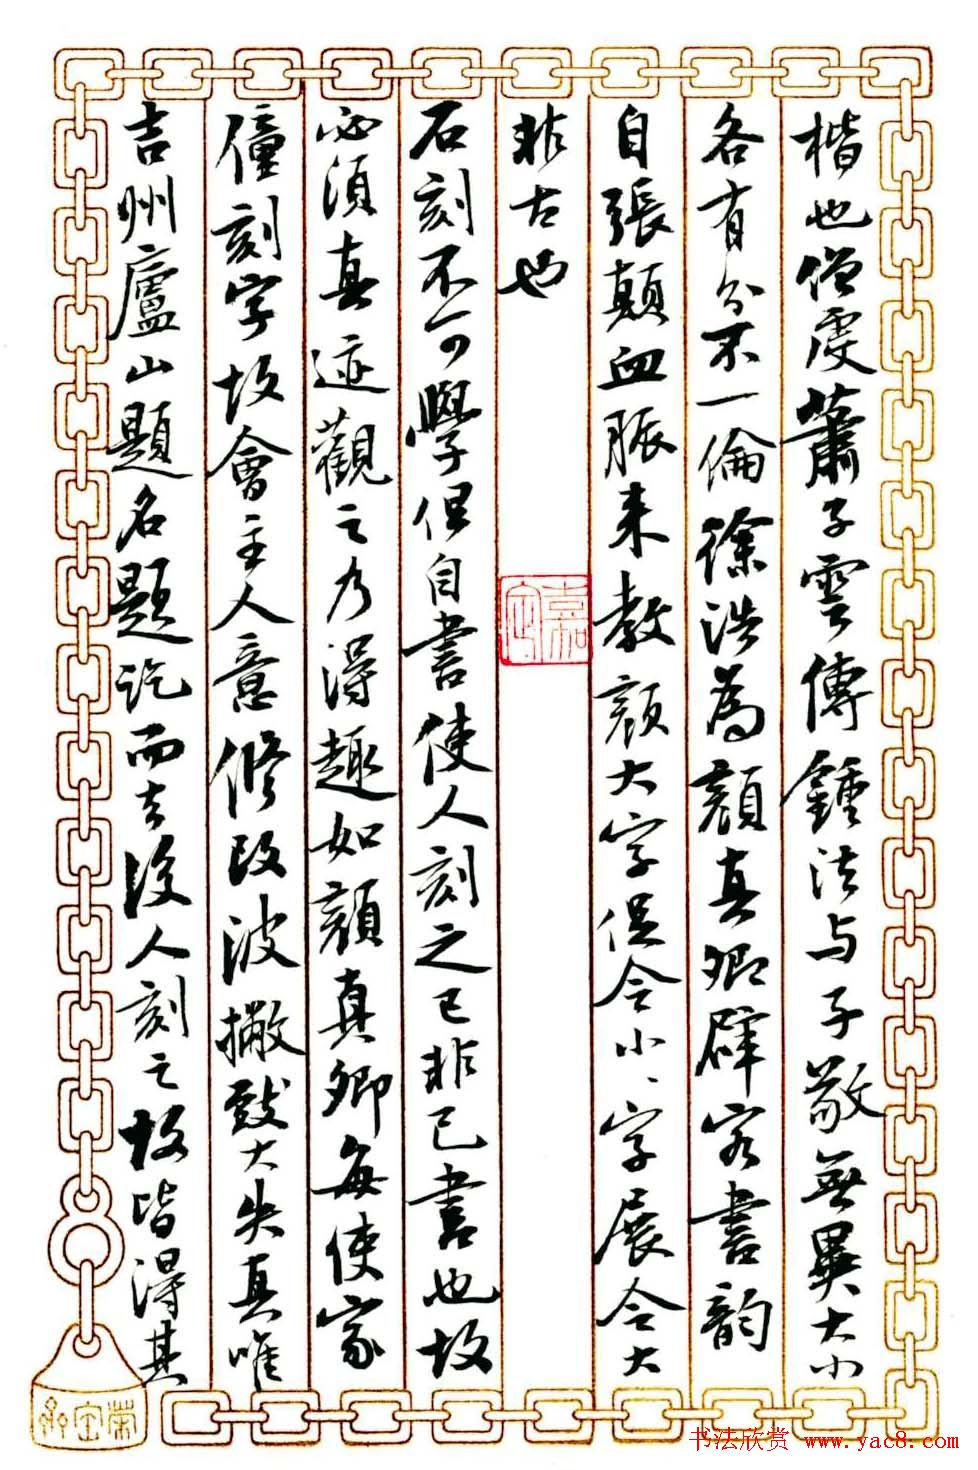 楷也僧虔蕭子雲傳鍾法与子敬無異大小
各有分不一倫徐浩為顏真卿辟客書韻
自張顛血脈来教顏大字促令小、字展令大
非古也
石刻不可學但自書使人刻之已非己書也故
必須真迹觀之乃得趣如顏真卿每使家
僮刻字故會主人意修改波撇致大失真唯
吉州廬山題名題訖而去後人刻之故皆得其
书法欣赏 www.yac8.com